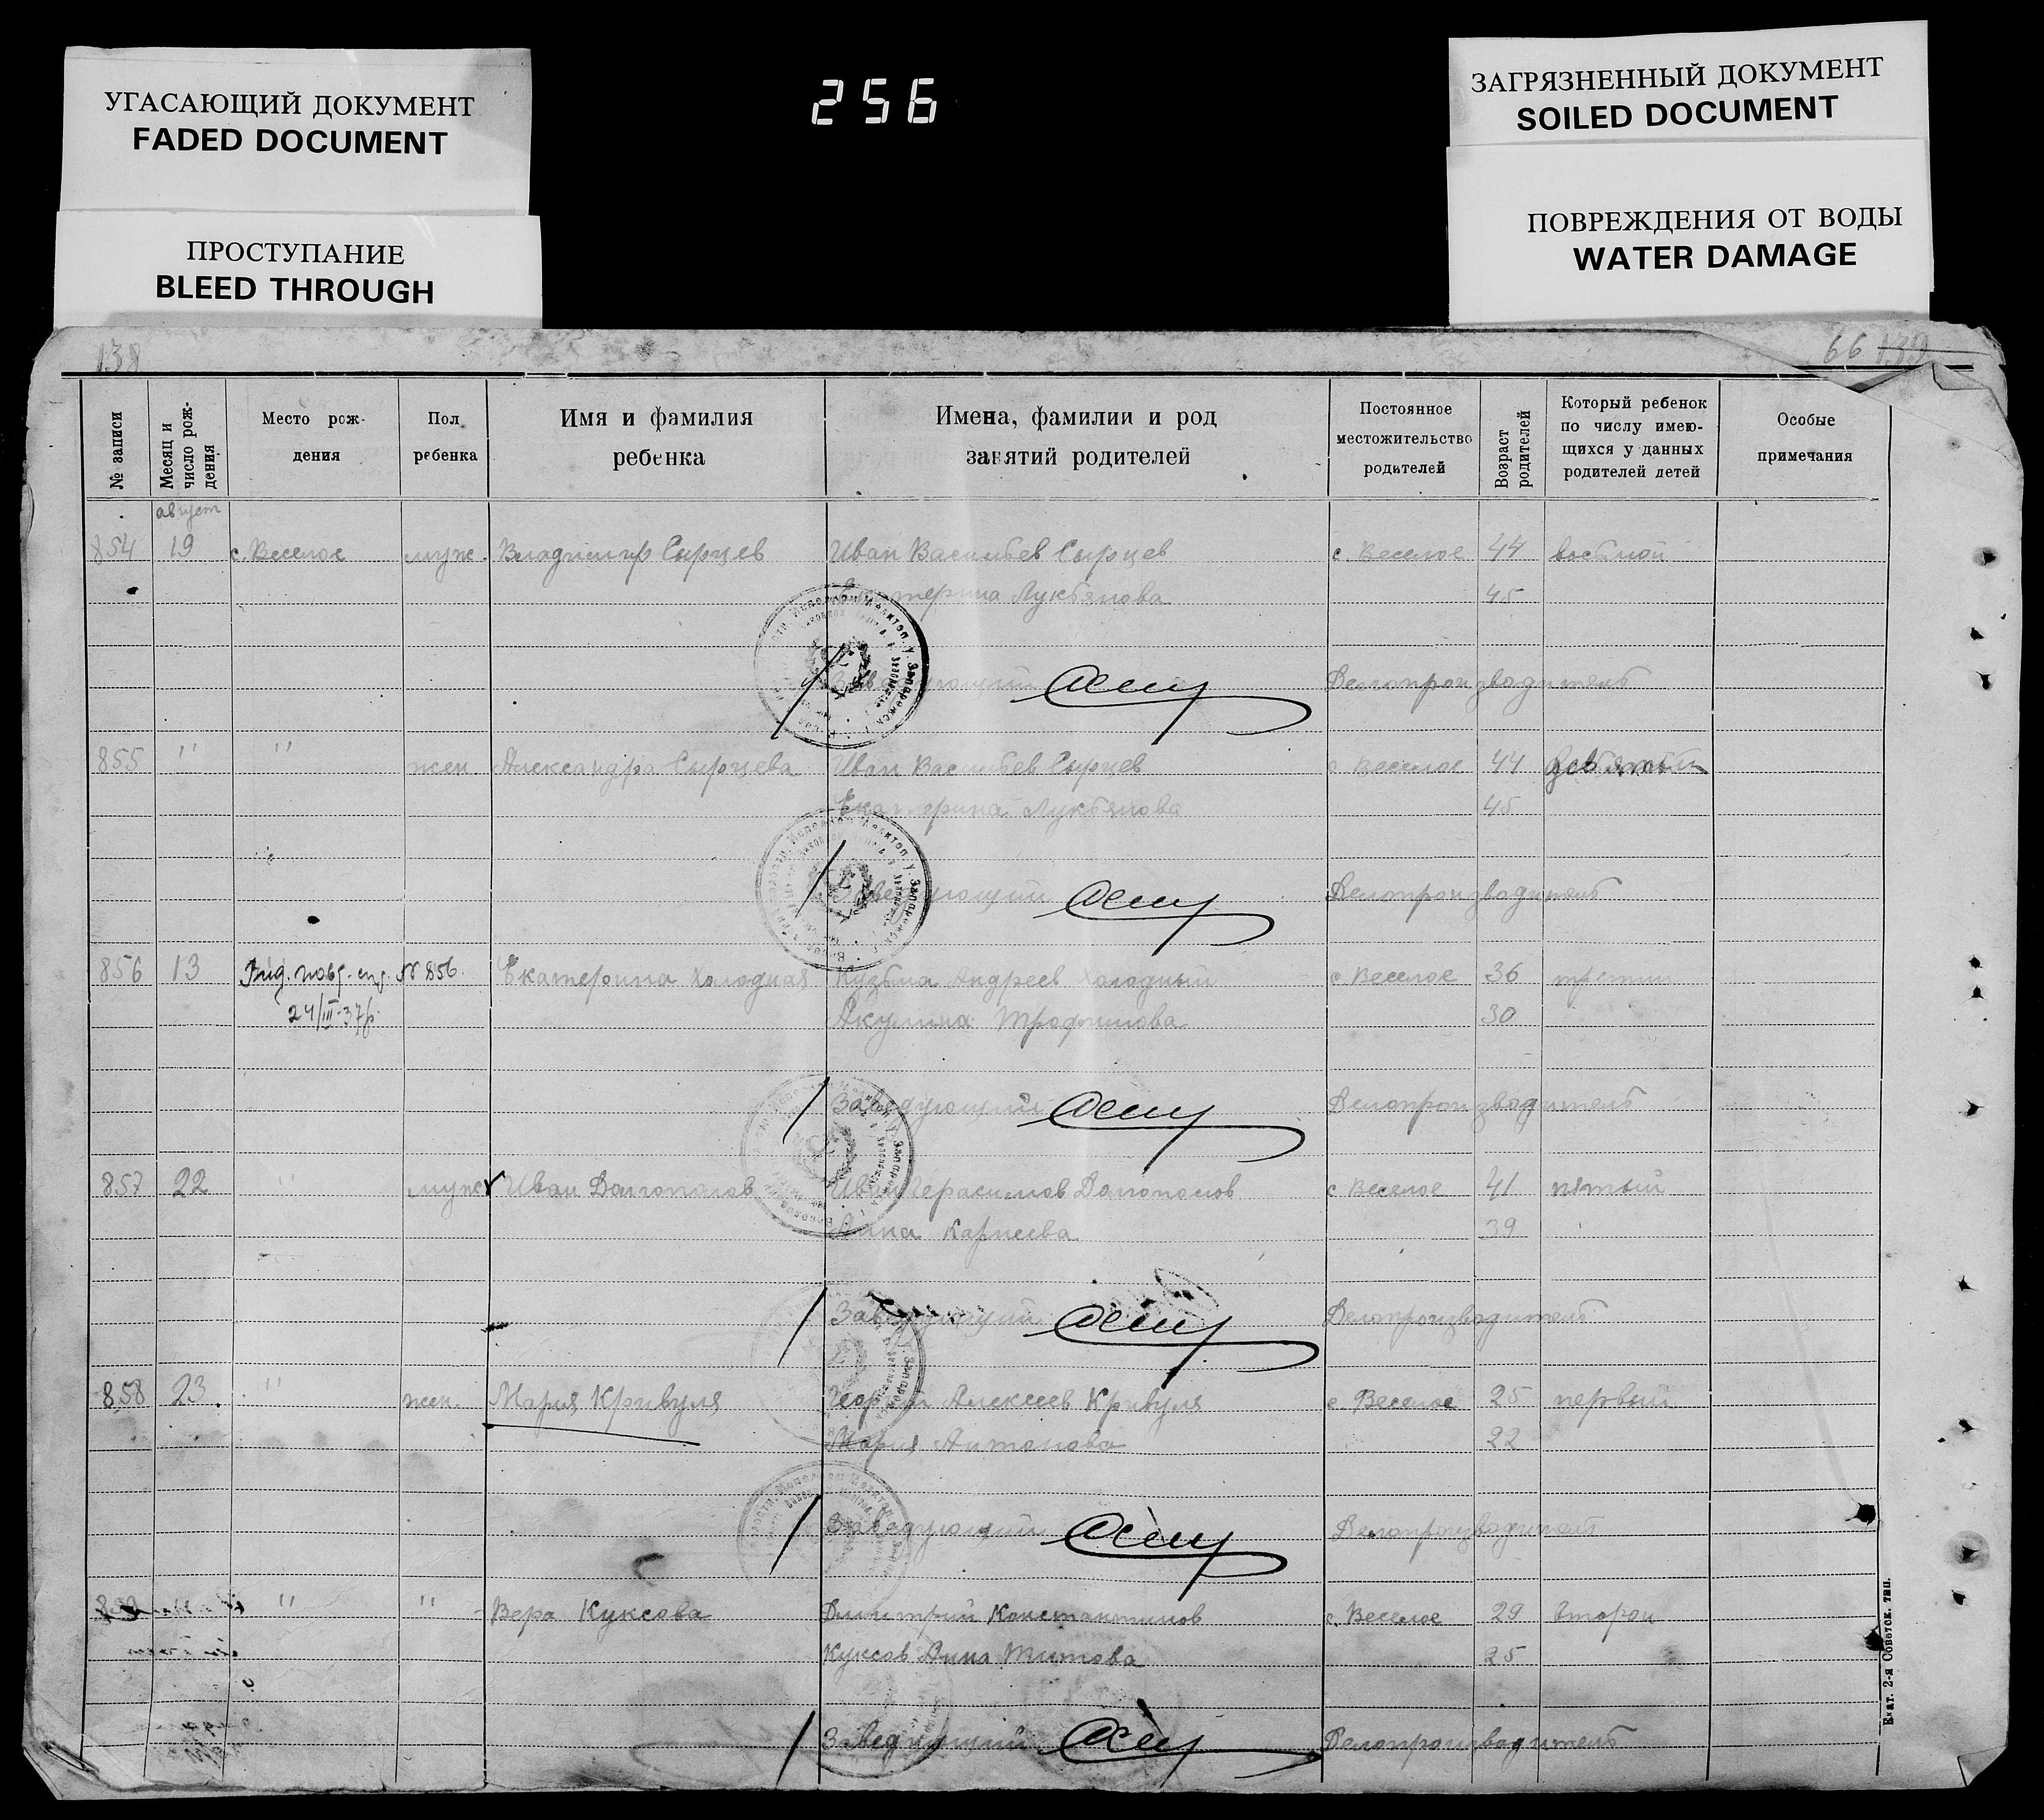 УГАСАЮЩИЙ ДОКУМЕНТ
FADED DOCUMENT
ПРОСТУПАНИЕ
BLEED THROUGH
256
ЗАГРЯЗНЕННЫЙ ДОКУМЕНТ
SOILED DOCUMENT
ПОВРЕЖДЕНИЯ ОТ ВОДЫ
WATER DAMAGE
138 66 139
№ записи Месяц и число рождения Место рождения Пол ребенка Имя и фамилия ребенка Имена, фамилии и род занятий родителей Постоянное местожительство родителей Возраст родителей Который ребенок по числу имеющихся у данных родителей детей Особые примечания
август
854 19 с. Веселое муж. Владимир Сырцев Иван Васильев Сырцев с Веселое 44 восьмой
Екатерина Лукьянова 45
Заведующий Делопроизводитель
855 " " жен. Александра Сырцева Иван Васильев Сырцев с Веселое 44 девятый
Екатерина Лукьянова 45
Заведующий Делопроизводитель
856 13 № 856. Екатерина Холодная Кузьма Андреев Холодный с Веселое 36 третий
24/III-37р. Акулина Трофимова 30
Заведующий Делопроизводитель
857 22 " муж Иван Долгополов Иван Герасимов Долгополов с Веселое 41 пятый
Анна Карпеева 39
Заведующий Делопроизводитель
858 23 " жен. Мария Кривуля Георгий Алексеев Кривуля с Веселое 25 первый
Мария Антонова 22
Заведующий Делопроизводитель
859 " " Вера Куксова Димитрий Константинов с. Веселое 29 второй
Куксов Анна Титова 25
Заведующий Делопроизводитель
Екат. 2-я Советск. тип.